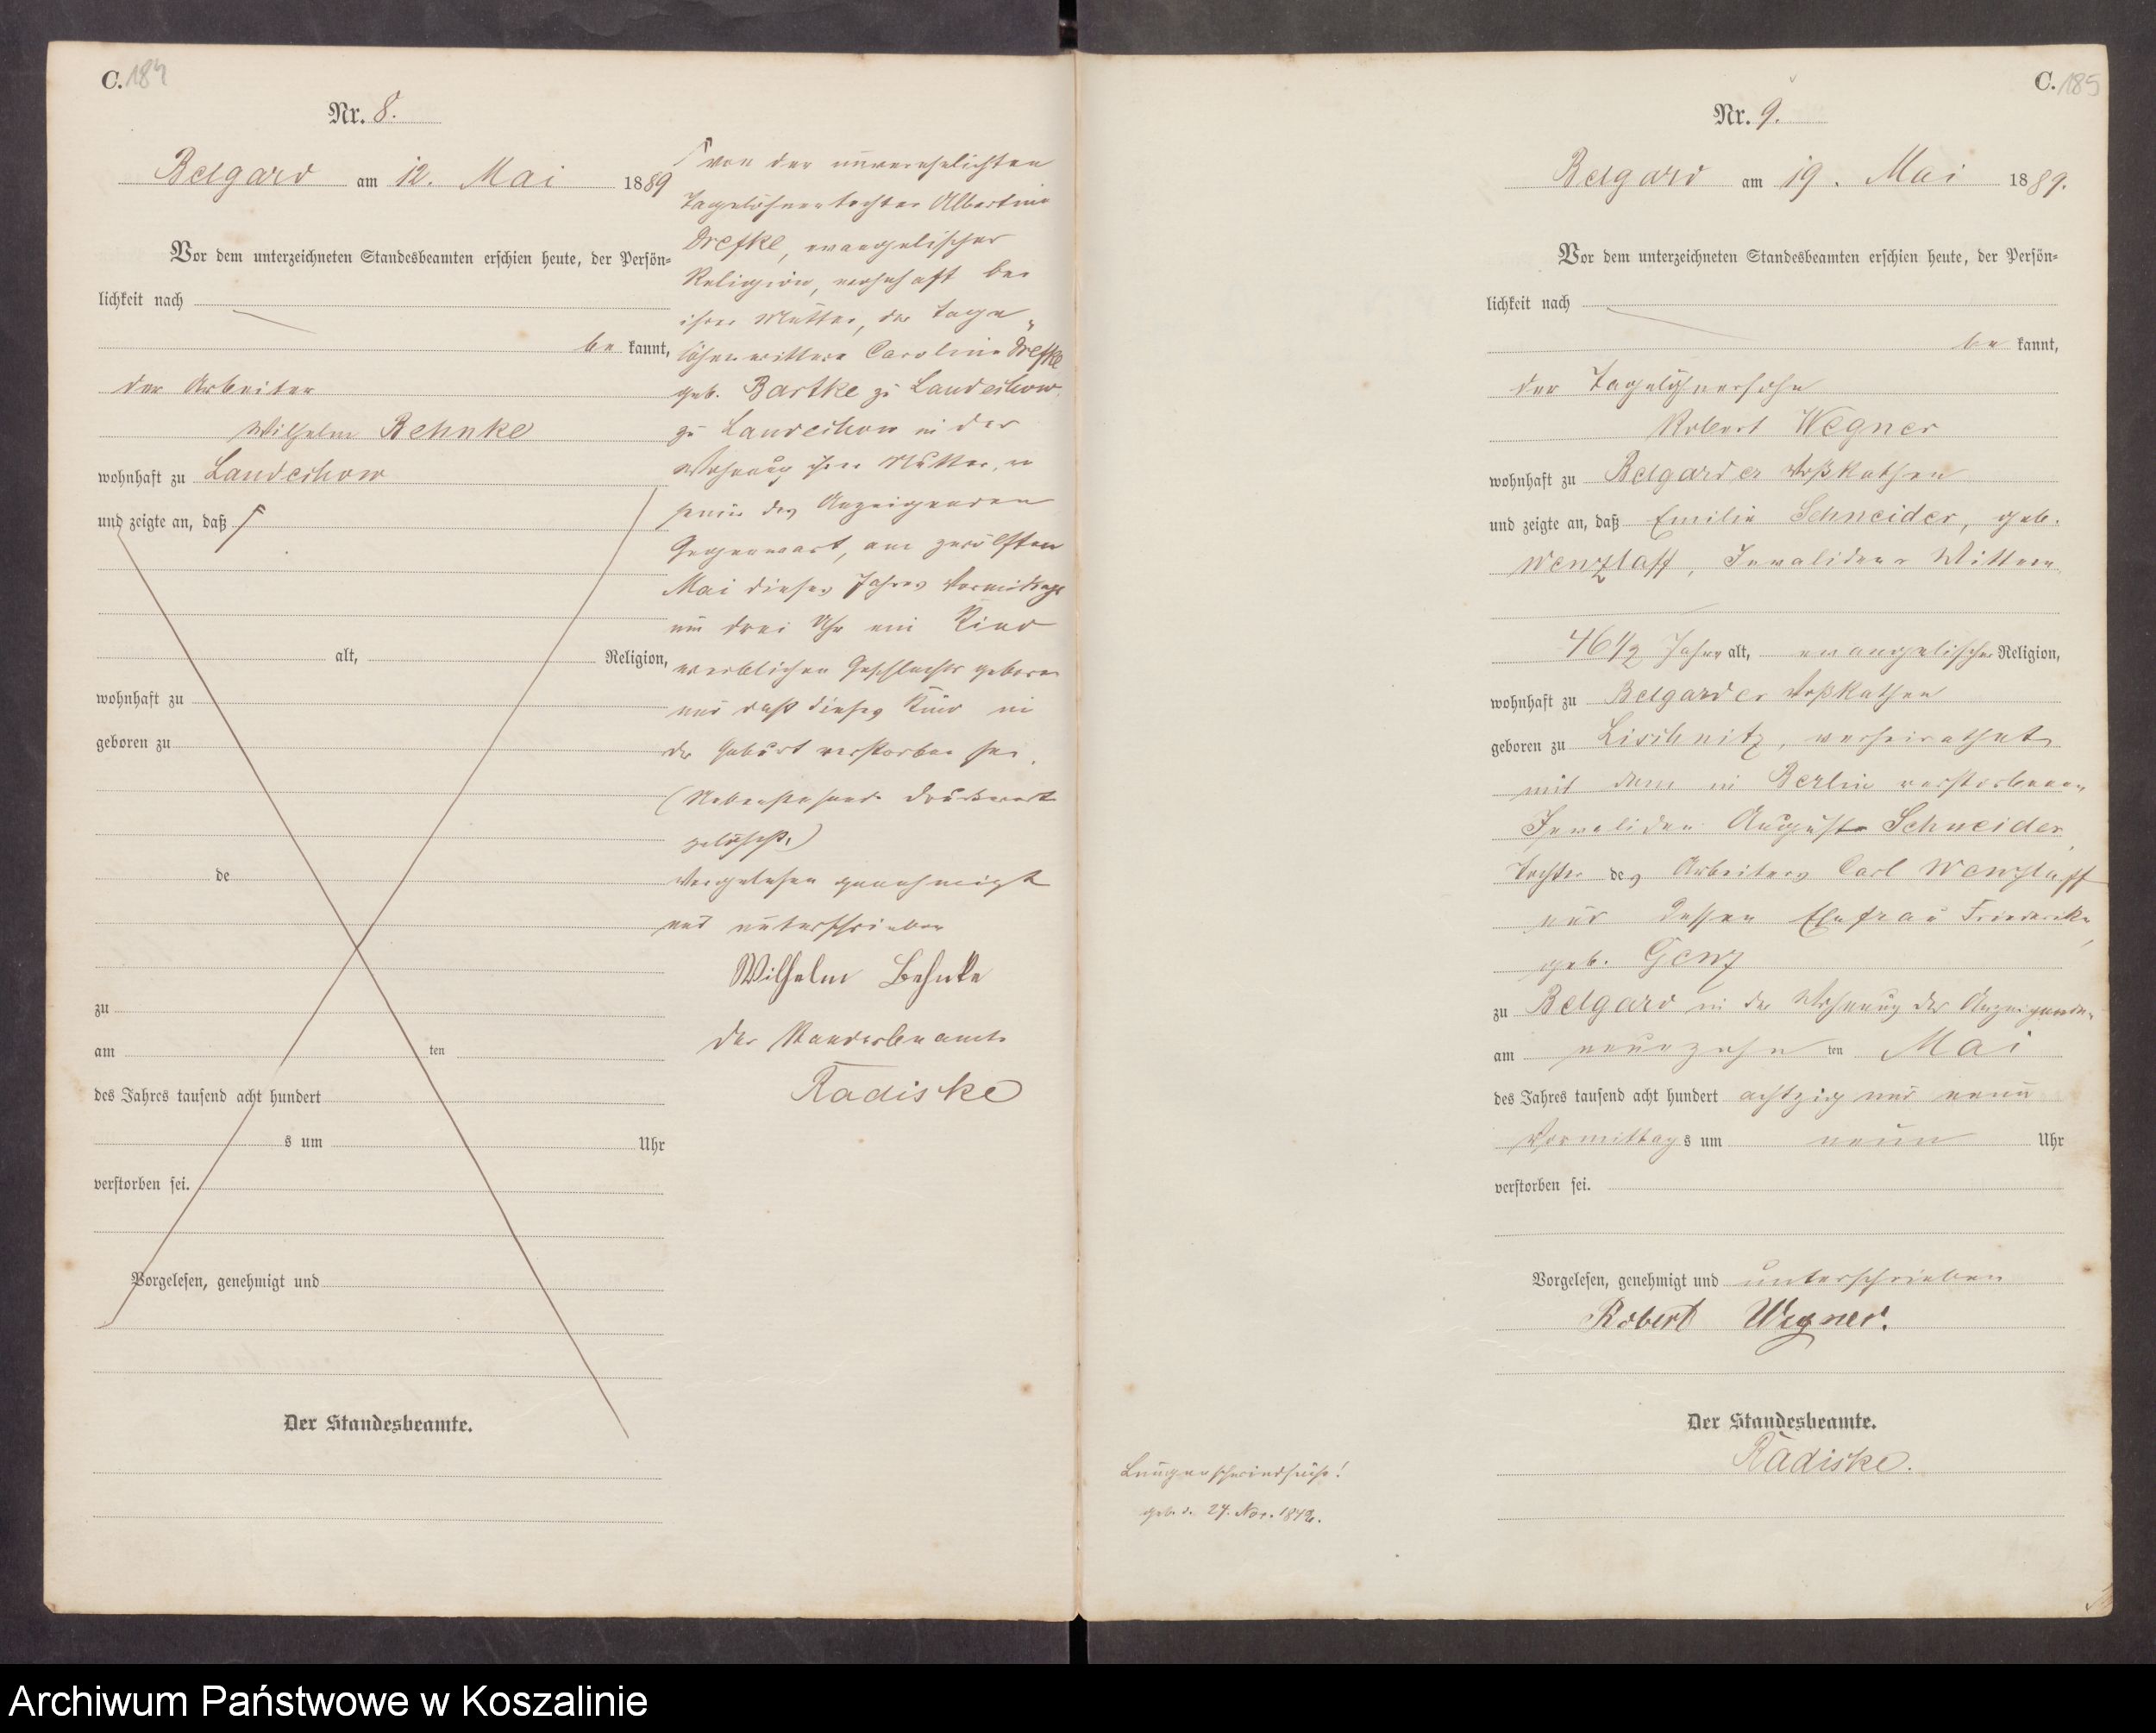 C. 184
Nr. 8.
Belgard am 12. Mai 1889
Vor dem unterzeichneten Standesbeamten erschien heute, der Persön-
lichkeit nach
be kannt,
der Arbeiter
Wilhelm Behnke
wohnhaft zu Landechow
und zeigte an, daß
alt, Religion,
wohnhaft zu
geboren zu
de
zu
am ten
des Jahres tausend acht hundert
s um Uhr
verstorben sei.
Vorgelesen, genehmigt und
Der Standesbeamte.
von der unverehelichten
Tagelöhnertochter Albertine
Drefke, evangelischer
Religion, wohnhaft bei
ihrer Mutter, der Tage„
löhnerwittwe Caroline Drefke
geb. Bartke zu Landechow,
zu Landechow in der
Wohnung ihrer Mutter, in
des Anzeigenden
Gegenwart, am zwölften
Mai dieses Jahres Vormittags
um drei Uhr ein Kind
weiblichen Geschlechts geboren
und daß dieses Kind in
der Geburt verstorben sei.
(Nebenstehende Druckworte
gelöscht.)
Vorgelesen genehmigt
und unterschrieben
Wilhelm Behnke
Der Standesbeamte
Radiske
C. 185
Nr. 9.
Belgard am 19. Mai 1889.
Vor dem unterzeichneten Standesbeamten erschien heute, der Persön-
lichkeit nach
be kannt,
der Tagelöhnersohn
Robert Wegner
wohnhaft zu Belgarder Voßkathen
und zeigte an, daß Emilie Schneider, geb.
Wenzlaff, Invaliden Wittwe,
46 1/2 Jahre alt, evangelischer Religion,
wohnhaft zu Belgarder Voßkathen
geboren zu Lischnitz, verheirathet
mit dem in Berlin verstorbenen
Invaliden August Schneider,
Tochter des Arbeiters Carl Wenzlaff
und dessen Ehefrau Friederike,
geb. Genz
zu Belgard in der Wohnung des Anzeigenden
am neunzehn ten Mai
des Jahres tausend acht hundert achtzig und neun
Vormittag s um neun Uhr
verstorben sei.
Vorgelesen, genehmigt und unterschrieben
Robert Wegner.
Der Standesbeamte.
Radiske.
Lungenschwindsucht!
geb. d. 24. Nov. 1842.
Archiwum Państwowe w Koszalinie